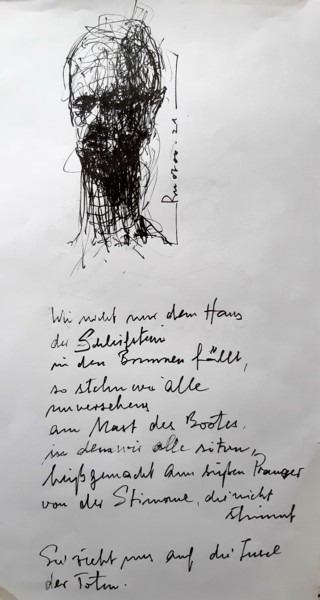 Wie nicht nur dem Hans
der Schleifstein
in den Brunnen fällt,
so stehn wir alle
unversehens
am Mast des Bootes,
in dem wir alle sitzen,
heißgemacht am süßen Pranger
von der Stimme, die nicht
stimmt
Sie zieht uns auf die Insel
der Toten.